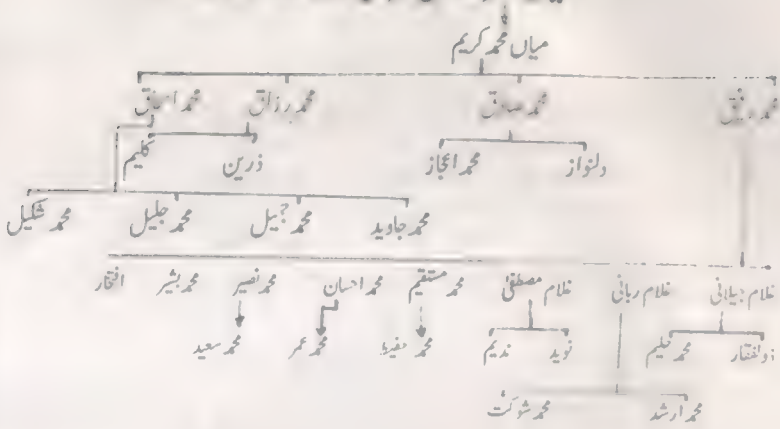 میاں محمد کریم
محمد رفیق محمد صادق محمد رزاق محمد اسحاق
دلنواز محمد اعجاز ذرین کلیم
محمد جاوید محمد جمیل محمد جلیل محمد شکیل
غلام جیلانی غلام ربانی غلام مصطفیٰ محمد مستقیم محمد احسان محمد نصیر محمد بشیر افتخار
ذوالفقار محمد حلیم نوید ندیم محمد حفیظ محمد عمر محمد سعید
محمد ارشد محمد شوکت